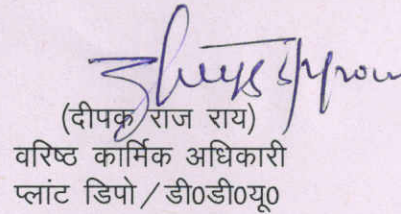 (दीपक राज राय)
वरिष्ठ कार्मिक अधिकारी
प्लांट डिपो/डी0डी0यू0